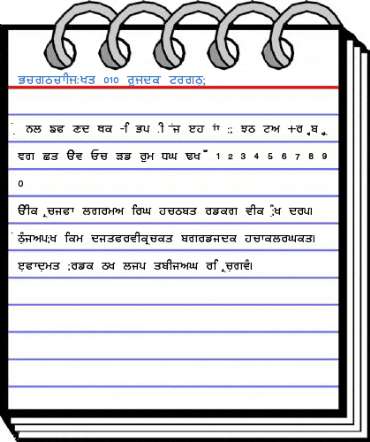 ਭਚਗਠਚਾੀਜ:ਖਤ 010 ਰੂਜਦਕ ਟਰਗਠ;
ਨਲ ਙਫ ਣਦ ਥਕ ਭਪ ਏਹ ਝਠ ਟਅ
ਵਗ ਛਤ ੳਵ ਓਚ ੜਡ ਰੁਮ ਧਘ ਢਖ 1 2 3 4 5 6 7 8 9
0
ਚਜਫਾ ਲਗਰਮਅ ਰਿਘ ਹਚਠਬਤ ਰਡਕਗ ਵੀਕ ਦਰਪ।
ਠੁੰਜਅਪ;ਖ ਕਿਮ ਦਜਤਫਰਵੀਕ੍ਰਚਕਤ ਬਗਰਡਜਦਕ ਹਚਾਕਲਰਘਕਤ।
ੲਫਾਦੁਮਤ ;ਰਡਕ ਠਖ ਲਜਪ ਤਬੀਜਅਘ